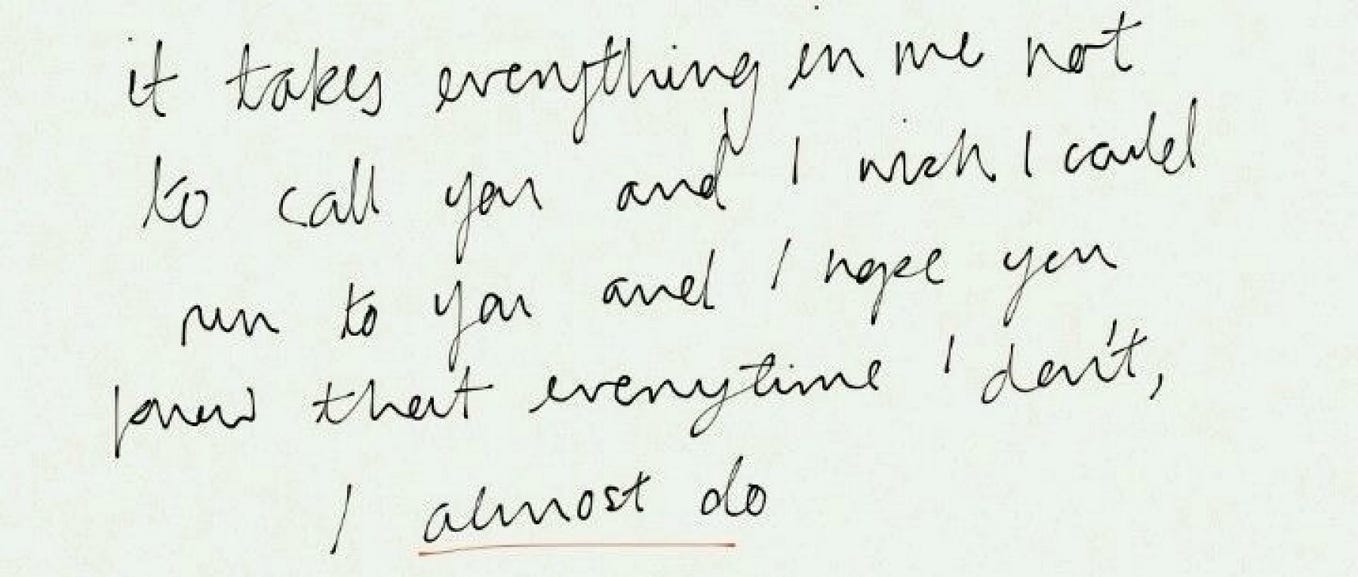 it takes everything in me not
to call you and I wish I could
run to you and I hope you
know that everytime I don't,
I almost do